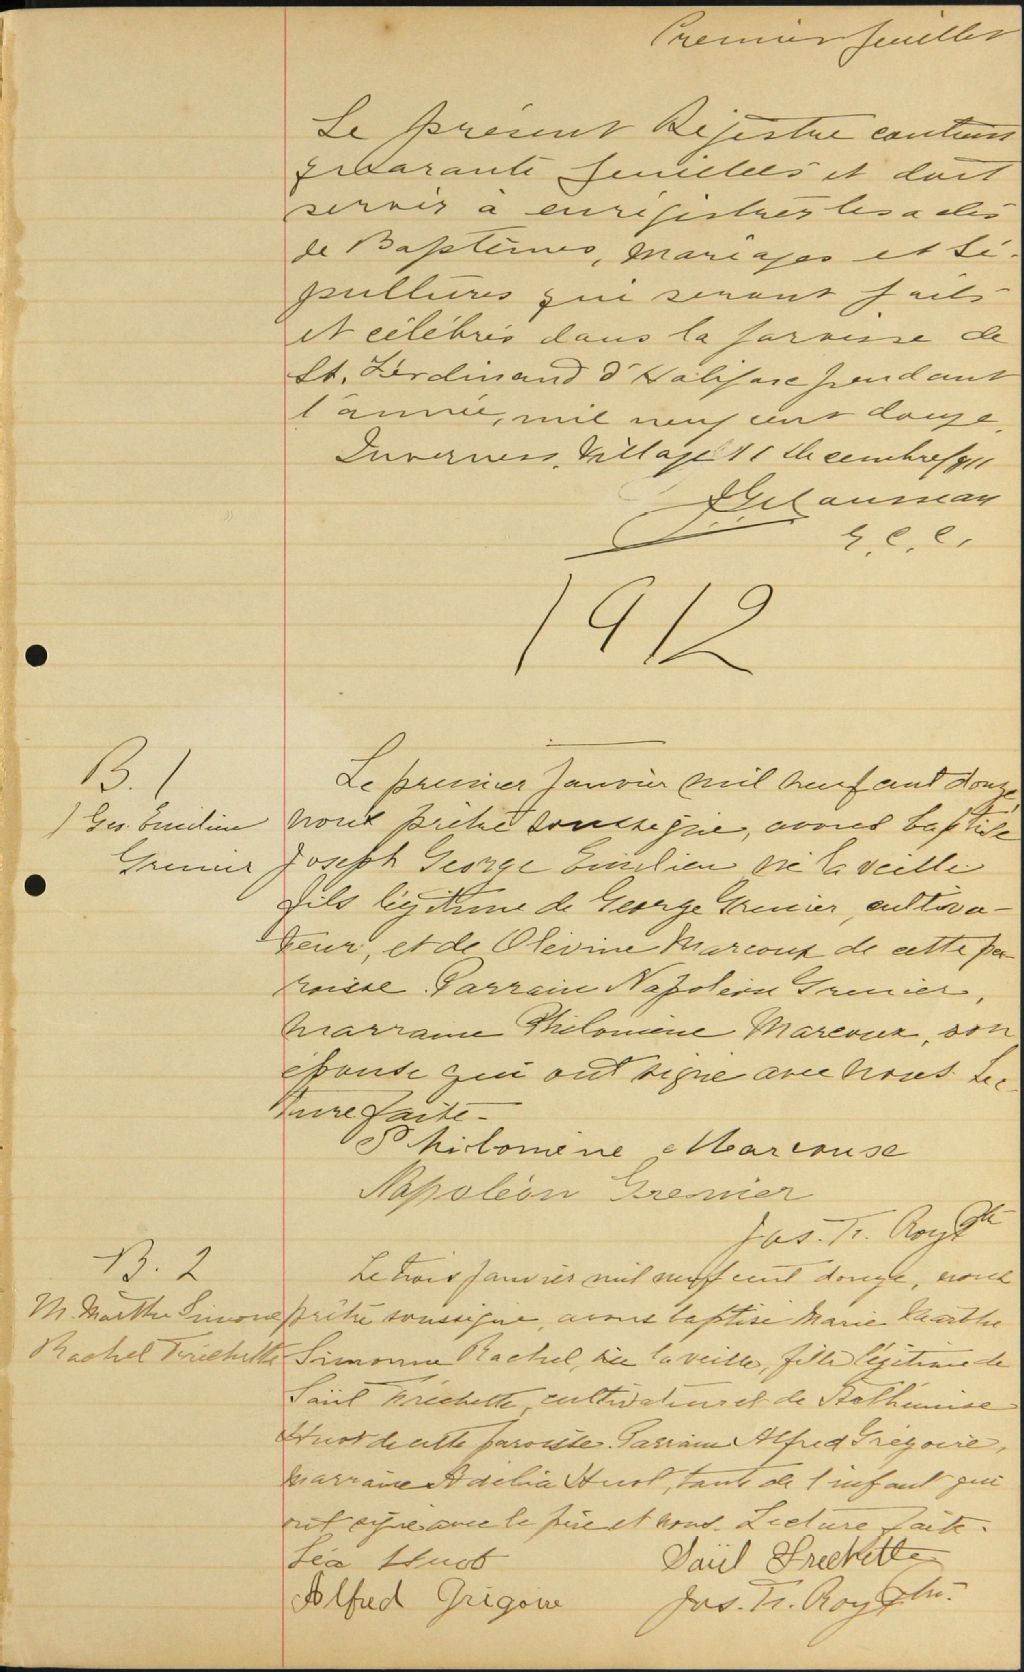 Premier feuillet
Le présent Régistre contient
quarante feuillets et doit
servir à enrégistrer les actes
de Baptêmes, Mariages et Sé-
pultures qui seront faits
et célébrés dans la paroisse de
St. Ferdinand d'Halifax pendant
l'année, mil neuf cent douze.
Inverness, Village 11 Décembre 1911
G. C. C.
1912
B. 1
J Geo. Emilien
Grenier
Le premier janvier mil neuf cent douze,
nous prêtre soussigné, avons baptisé
Joseph George Emilien né la veille
fils légitime de George Grenier, cultiva-
teur, et de Olévine Marcoux de cette pa-
roisse. Parrain Napoléon Grenier,
marraine Philomène Marcoux, son
épouse qui ont signé avec nous. Lec-
ture faite.
Philomène Marcouse
Napoléon Grenier
Jos. Tr. Roy Ptre
B. 2
M. Marthe Simone
Rachel Fréchette
Le trois janvier mil neuf cent douze, nous
prêtre soussigné, avons baptisé Marie Marthe
Simonne Rachel, née la veille, fille légitime de
Saül Fréchette, cultivateur et de
Huot de cette paroisse. Parrain Alfred Grégoire,
marraine Adélia Huot, tante de l'enfant qui
ont signé avec le père et nous. Lecture faite.
Léa Huot
Saül Frechette
Alfred Grigoire
Jos. Tr. Roy Ptre.